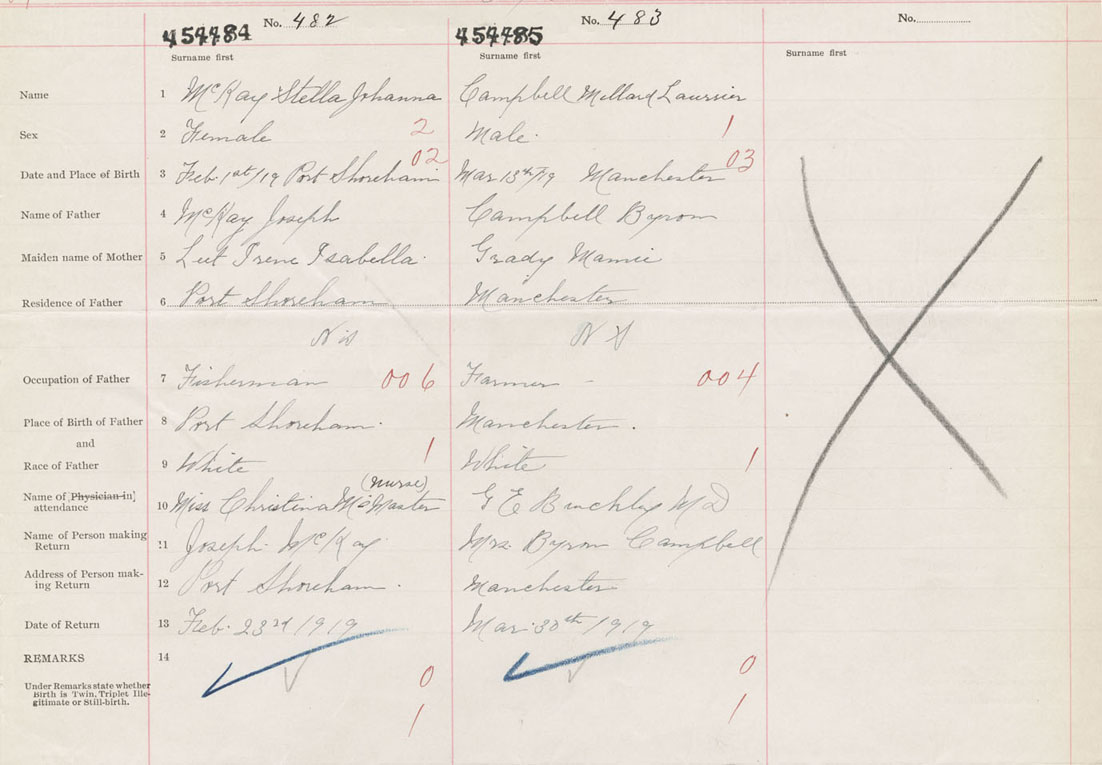 No. 482 No. 483 No.
454484 454485
Surname first Surname first Surname first
Name 1 McKay Stella Johanna Campbell Millard Laurier
Sex 2 Female 2 Male. 1
02 03
Date and Place of Birth 3 Feb. 1st/19 Port Shoreham Mar. 13th/19 Manchester
Name of Father 4 McKay Joseph Campbell Byron
Maiden name of Mother 5 Irene Isabella Grady Mamie
Residence of Father 6 Port Shoreham Manchester
Occupation of Father 7 Fisherman 006 Farmer - 004
Place of Birth of Father 8 Port Shoreham. Manchester.
and
Race of Father 9 White 1 White 1
(Nurse)
Name of Physician in attendance 10 Miss Christina McMaster G E Buckley M D
Name of Person making Return 11 Joseph McKay Mrs. Byron Campbell
Address of Person mak-ing Return 12 Port Shoreham. Manchester
Date of Return 13 Feb. 23rd 1919 Mar. 30th 1919
REMARKS 14
0 0
Under Remarks state whether
Birth is Twin, Triplet Ille-
gitimate or Still-birth.
1 1